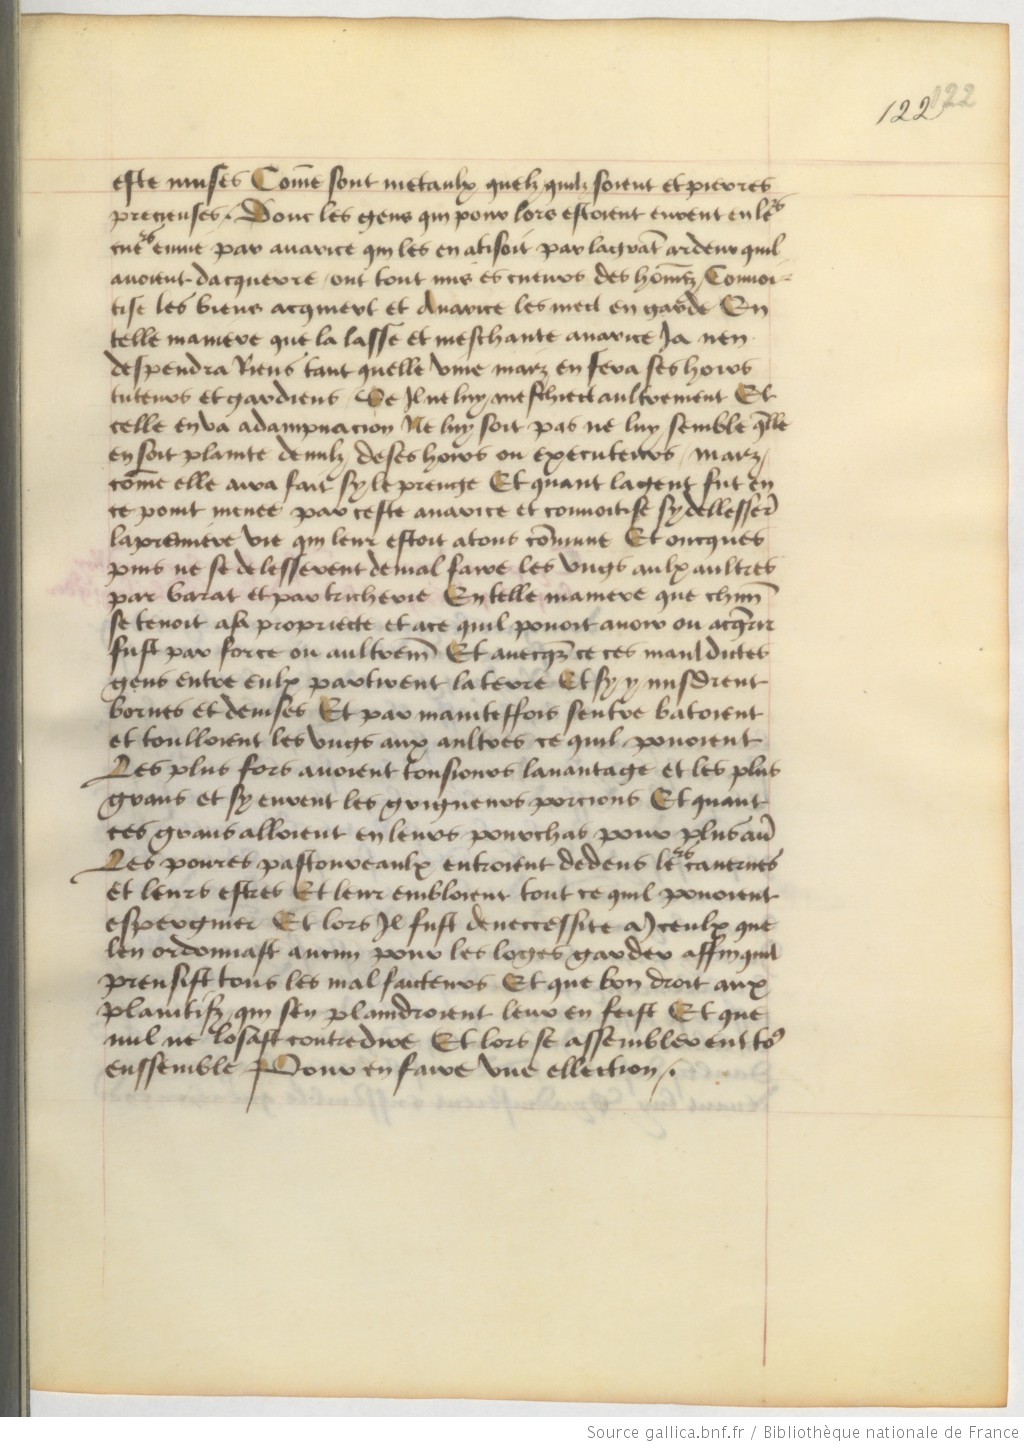 122 122
este muses Cōme sont metaulx quelz quilz soient et pierres
precieuses. Donc les gens qui pour lors estoient eurent en lers
cuers enuie par auarice qui les en atisoit par la grāt ardeur quil
auoient dacquerre ont tout mis es cueurs des hōmes Conuoi-
tise les biens acquiert et Auarice les mect en garde En
telle maniere que la lasse et meschante auarice Ja nen
despendra Riens tant quelle viue mais en fera ses hoirs
tuteurs et gardiens Se Il ne luy meschiect aultrement Et
celle en va adampnacion Ne luy soit pas ne luy semble q̄lle
en soit plainte de nulz de ses hoirs ou executeurs mais
cōme elle aura fait sy le prenge Et quant la gent fut en
ce point menee par ceste auarice et conuoitise sy dellesser̄
la premiere vie qui leur estoit a tous cōmune Et oncques
puis ne se delesserent de mal faire les vngs aulx aultres
par barat et par tricherie En telle maniere que chūn
se tenoit a sa propriecte et a ce quil pouoit auoir ou acq̄rir
fust par force ou aultrem̄ Et auecq̄s ce ces mauldictes
gens entre eulx partirent la terre Et sy y misdrent
bornes et deuises Et par mainteffois sentre batoient
et toulloient les vngs aux aultres ce quil pouoient
Les plus fors auoient tousiours lauantage et les plus
grans et sy eurent les grigneurs porcions Et quant
ces grans alloient en leurs pourchas pour plus au̅
Les poures pastoureaulx entroient dedens lers cauernes
et leurs estres Et leur embloient tout ce quil pouoient
espergnier Et lors Il fust de neccessite a Jceulx que
len ordonnast aucun pour les loges garder affin quil
prensist tous les mal faicteurs Et que bon droit aux
plaintifz qui sen plaindroient leur en feist Et que
nul ne losast contredire Et lors se assemblerent to9
enssemble Pour en faire vne ellection.
Source gallica.bnf.fr / Bibliothèque nationale de France